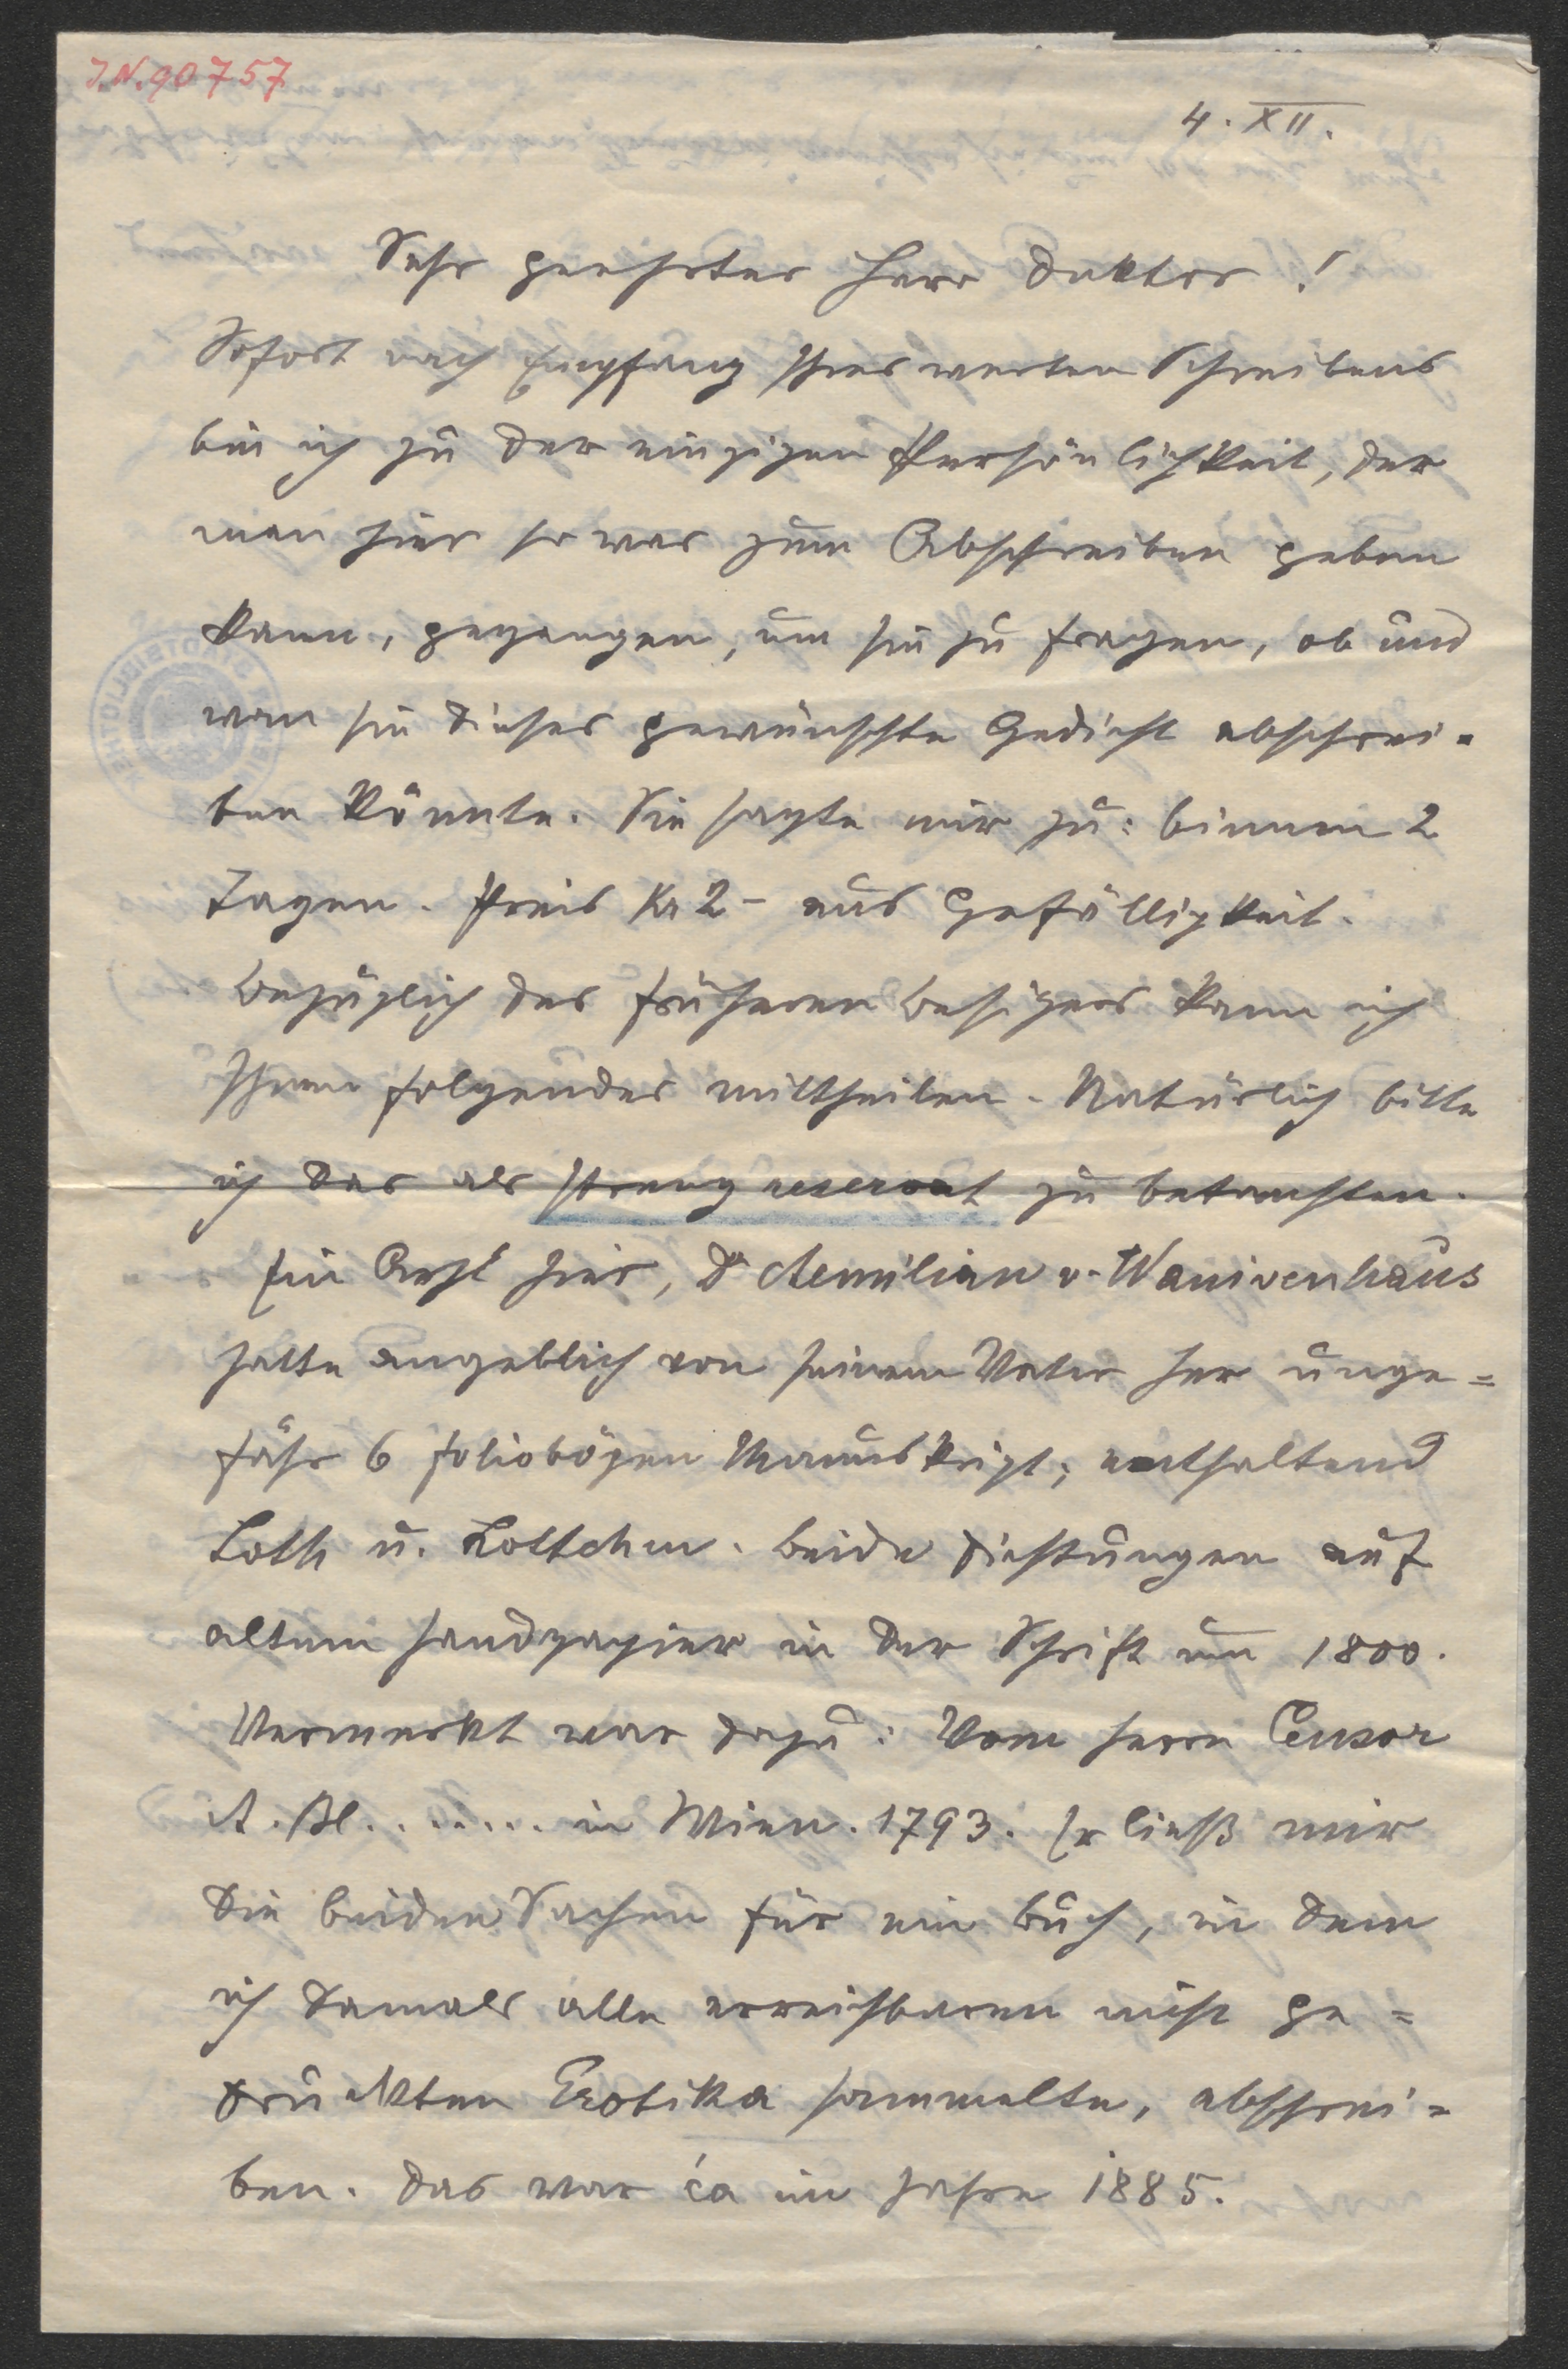 I.N. 90757
4. XII.
Sehr geehrter Herr Doktor!
Sofort nach Empfang Ihres werten Schreibens
bin ich zu der einzigen Persönlichkeit, der
man hier so was zum Abschreiben geben
kann, gegangen, um sie zu fragen, ob und
wan sie dieses gewünschte Gedicht abschrei-
ben könnte. Sie sagte mir zu: binnen 2
Tagen. Preis Kr 2- aus Gefälligkeit.
Bezüglich des früheren Besitzers kann ich
Ihnen folgendes mittheilen. Natürlich bitte
ich das als streng reservat zu betrachten.
Ein Arzt hier, Dr Aemilian v. Wanivenhaus
hatte angeblich von seinem Vater her unge=
fähr 6 Foliobögen Manuskript; enthaltend
Loth u. Lottchen. Beide Dichtungen auf
altem Handpapier in der Schrift um 1800.
Vermerkt war dazu: Vom Herrn Censor
A. Bl........ in Wien. 1793. Er ließ mir
die beiden Sachen für ein Buch, in dem
ich damals alle erreichbaren nicht ge=
druckten Erotika sammelte, abschrei=
ben. Das war ca im Jahre 1885.